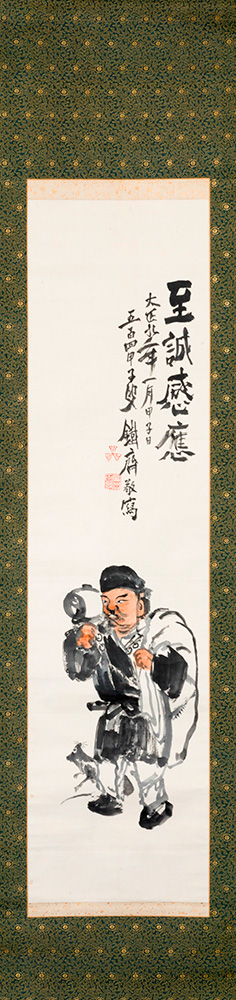 至誠感應
大正九年一月甲子日
五百四甲子叟 鐵齋敬寫